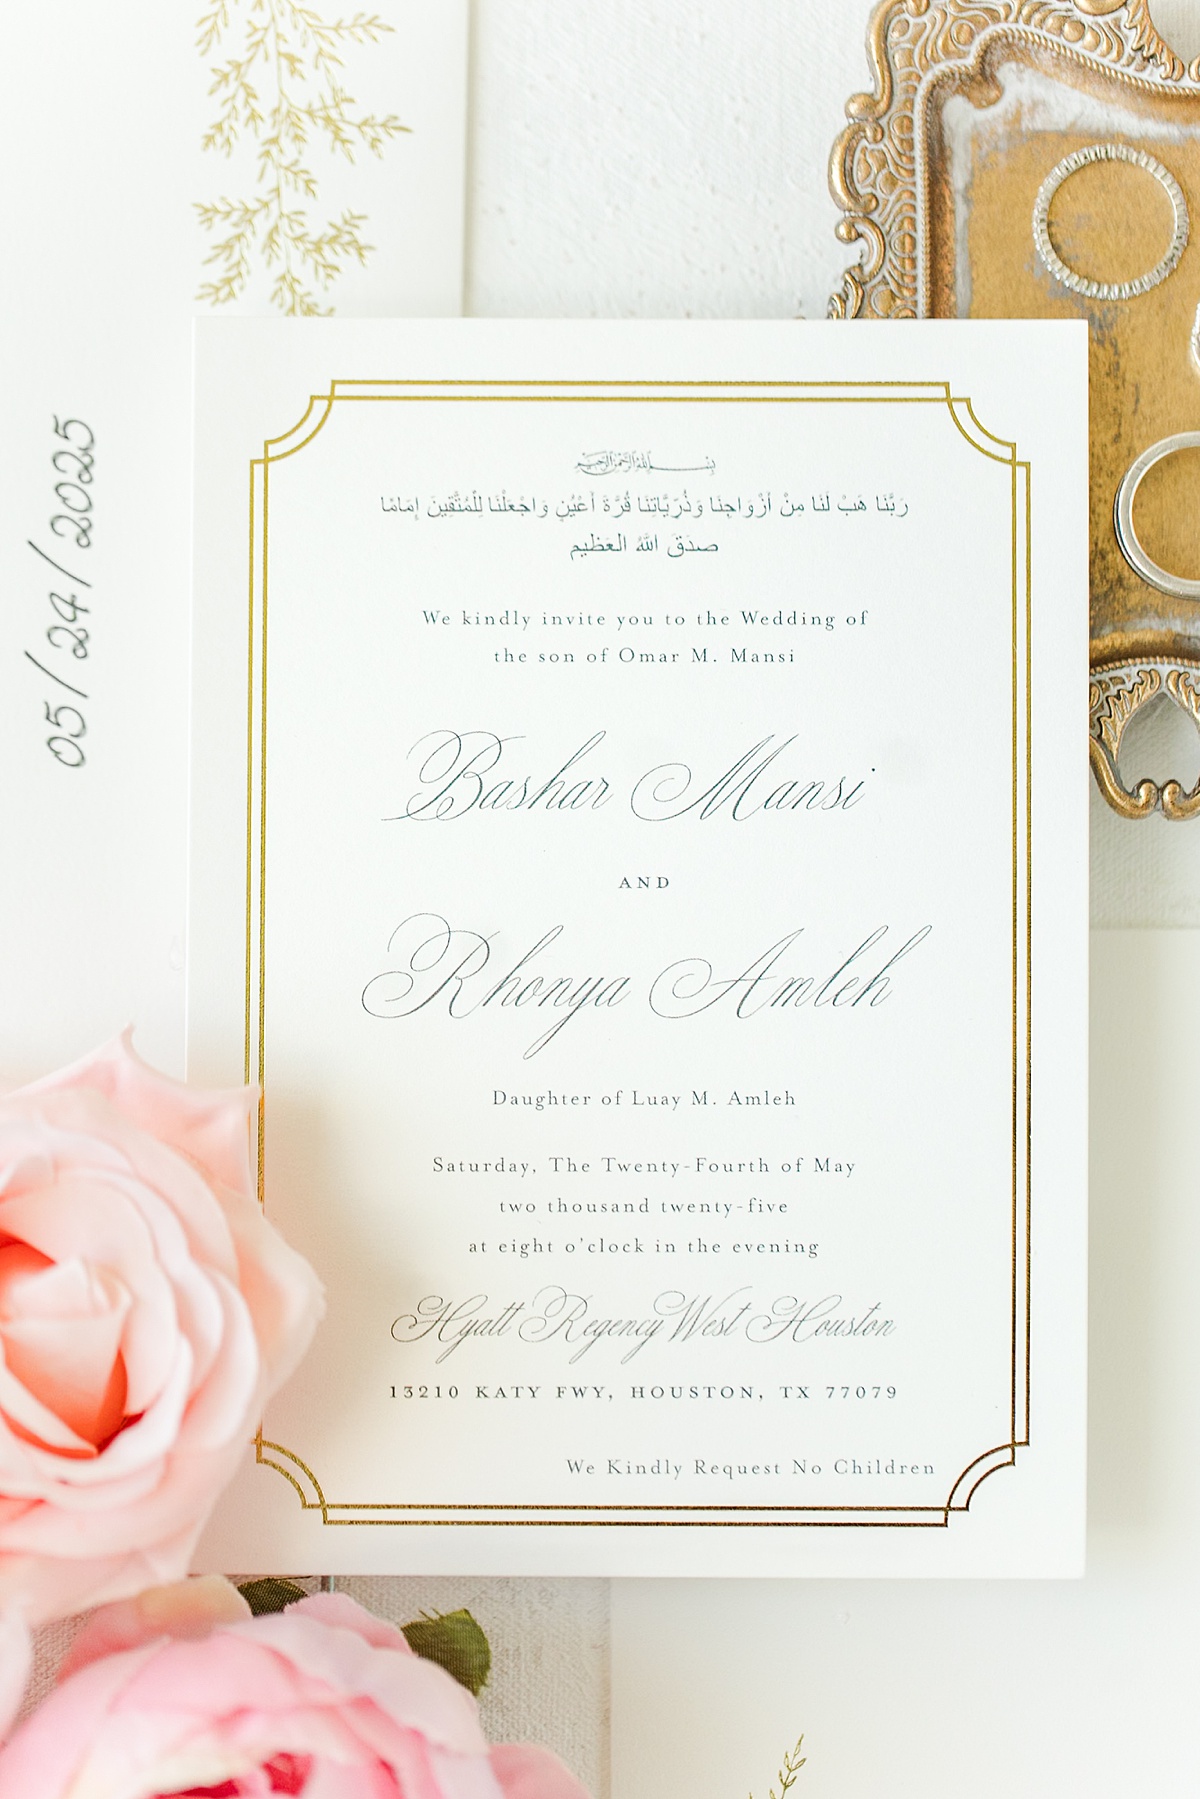 05/24/2025
بسم الله الرحمن الرحيم
رَبَّنَا هَبْ لَنَا مِنْ أَزْوَاجِنَا وَذُرِّيَّاتِنَا قُرَّةَ أَعْيُنٍ وَاجْعَلْنَا لِلْمُتَّقِينَ إِمَامًا
صدَقَ اللهُ العَظيم
We kindly invite you to the Wedding of
the son of Omar M. Mansi
Bashar Mansi
AND
Rhonya Amleh
Daughter of Luay M. Amleh
Saturday, The Twenty-Fourth of May
two thousand twenty-five
at eight o'clock in the evening
Hyatt Regency West Houston
13210 KATY FWY, HOUSTON, TX 77079
We Kindly Request No Children